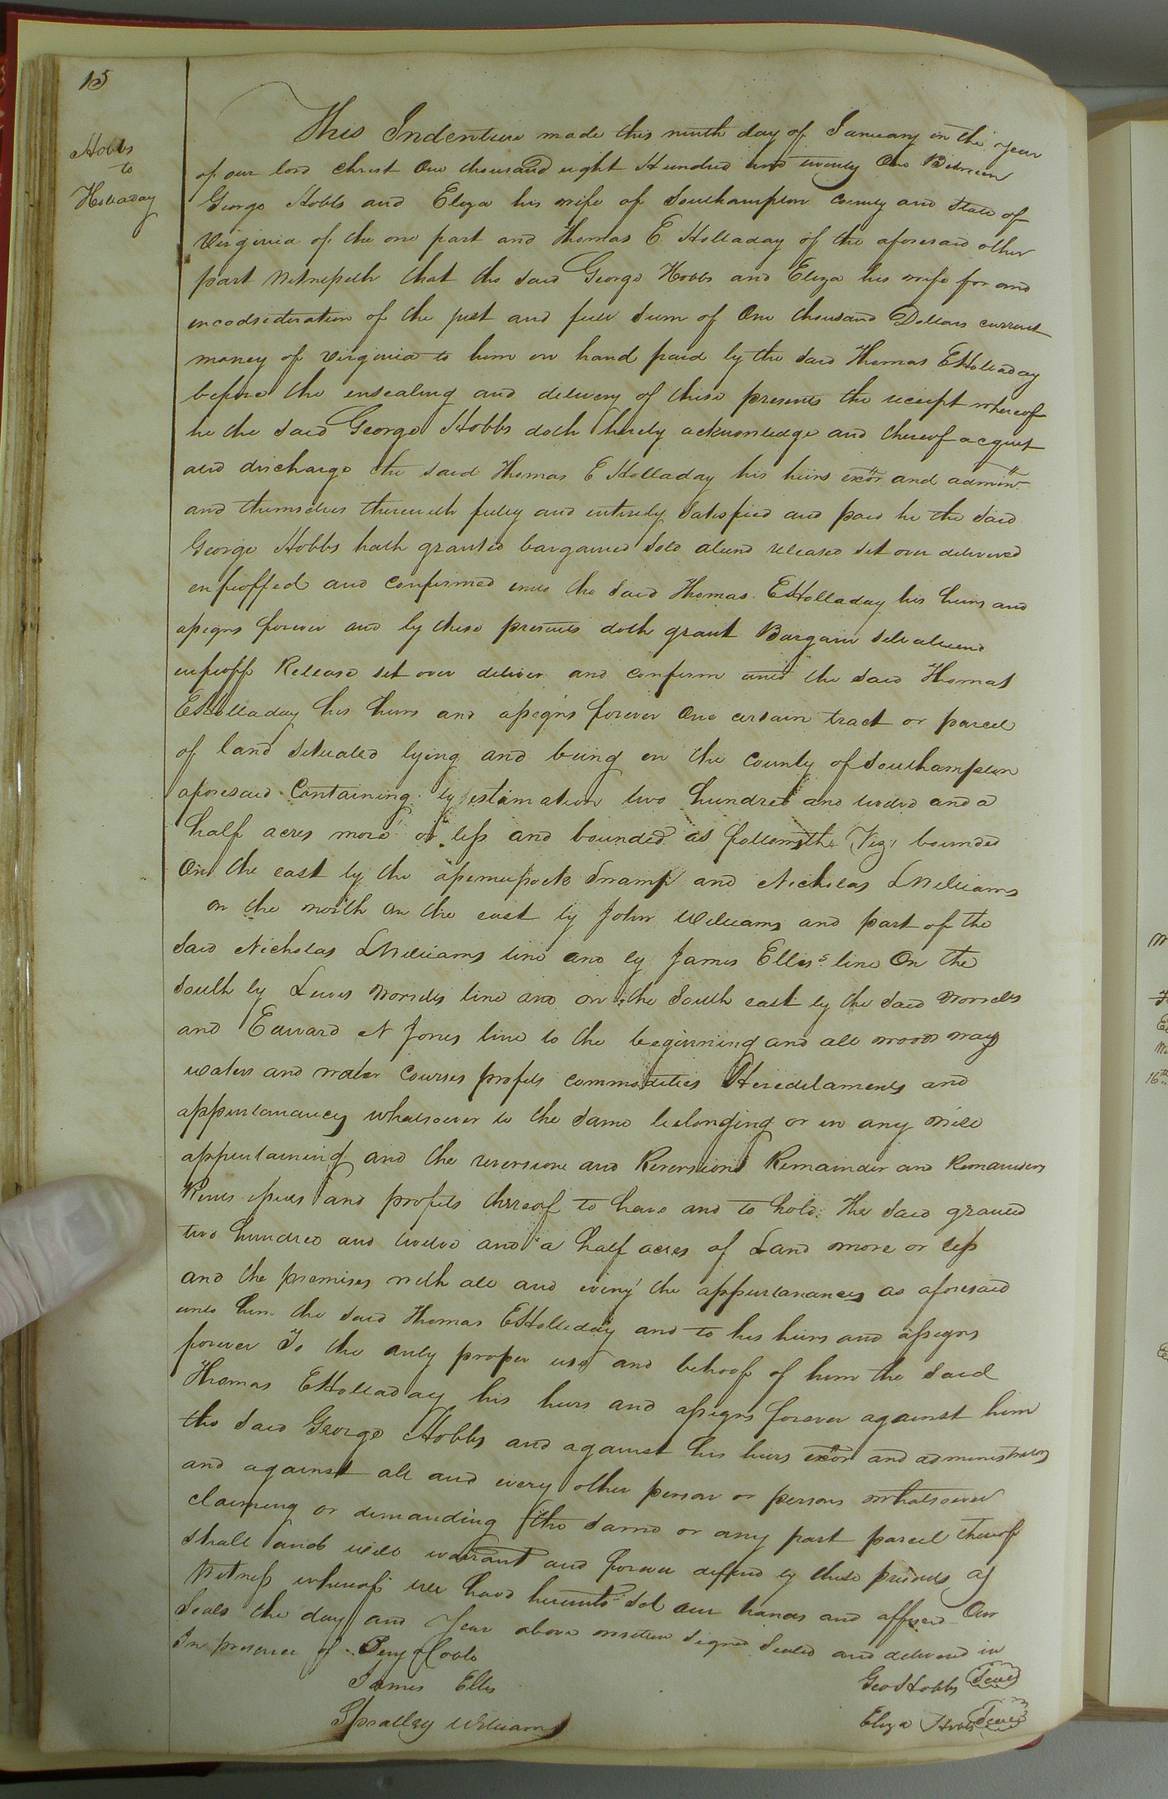 15
Hobbs
to
Holladay
This Indenture made this ninth day of January in the year
of our lord Christ One thousand eight Hundred and twenty One Between
George Hobbs and Eliza his wife of Southampton county and State of
Virginia of the one part and Thomas E Holladay of the aforesaid other
part Witnesseth that the said George Hobbs and Eliza his wife for and
in consideration of the just and full sum of One thousand Dollars current
money of Virginia to him in hand paid by the said Thomas E Holladay
before the ensealing and delivery of these presents the receipt whereof
he the said George Hobbs doth hereby acknowledge and thereof acquit
and discharge the said Thomas E Holladay his heirs exors and admin
and themselves therewith fully and entirely satisfied and paid he the said
George Hobbs hath granted bargained Sold aliend released set over delivered
enfeoffed and confirmed unto the said Thomas E Holladay his heirs and
assigns forever and by these presents doth grant Bargain sell aliend
enfeoff Release set over deliver and confirm unto the said Thomas
E Holladay his heirs and assigns forever One certain tract or parcel
of land situated lying and being in the county of Southampton
aforesaid Containing by estimation two hundred and twelve and a
half acres more or less and bounded as followeth Viz, bounded
On the east by the Swamp and Nicholas L Williams
on the north on the east by John Williams and part of the
said Nicholas L Williams line and by James Ellis's line On the
south by Lewis Worrels line and on the South east by the said Worrels
and Edward N Jones line to the beginning and all woods ways
waters and water courses profits commodities Hereditaments and
appurtanances whatsoever to the same belonging or in any wise
appertaining and the reversion and Reversions Remainder and Remainders
Rents issues and profits thereof to have and to hold The said granted
two hundred and twelve and a half acres of Land more or less
and the premises with all and every the appurtanances as aforesaid
unto him the said Thomas E Holladay and to his heirs and assigns
forever To the only proper use and behoof of him the said
Thomas E Holladay his heirs and assigns forever against him
the said George Hobbs and against his heirs exors and administrators
and against all and every other person or persons whatsoever
claiming or demanding the same or any part parcel thereof
shall and will warrant and forever defend by these presents as
Witness whereof we have hereunto set our hands and affixed Our
Seals the day and Year above written signed Sealed and delivered in
In presence of
James Ellis
Spratley Williams
Geo Hobbs Seal
Eliza Hobbs Seal
16th